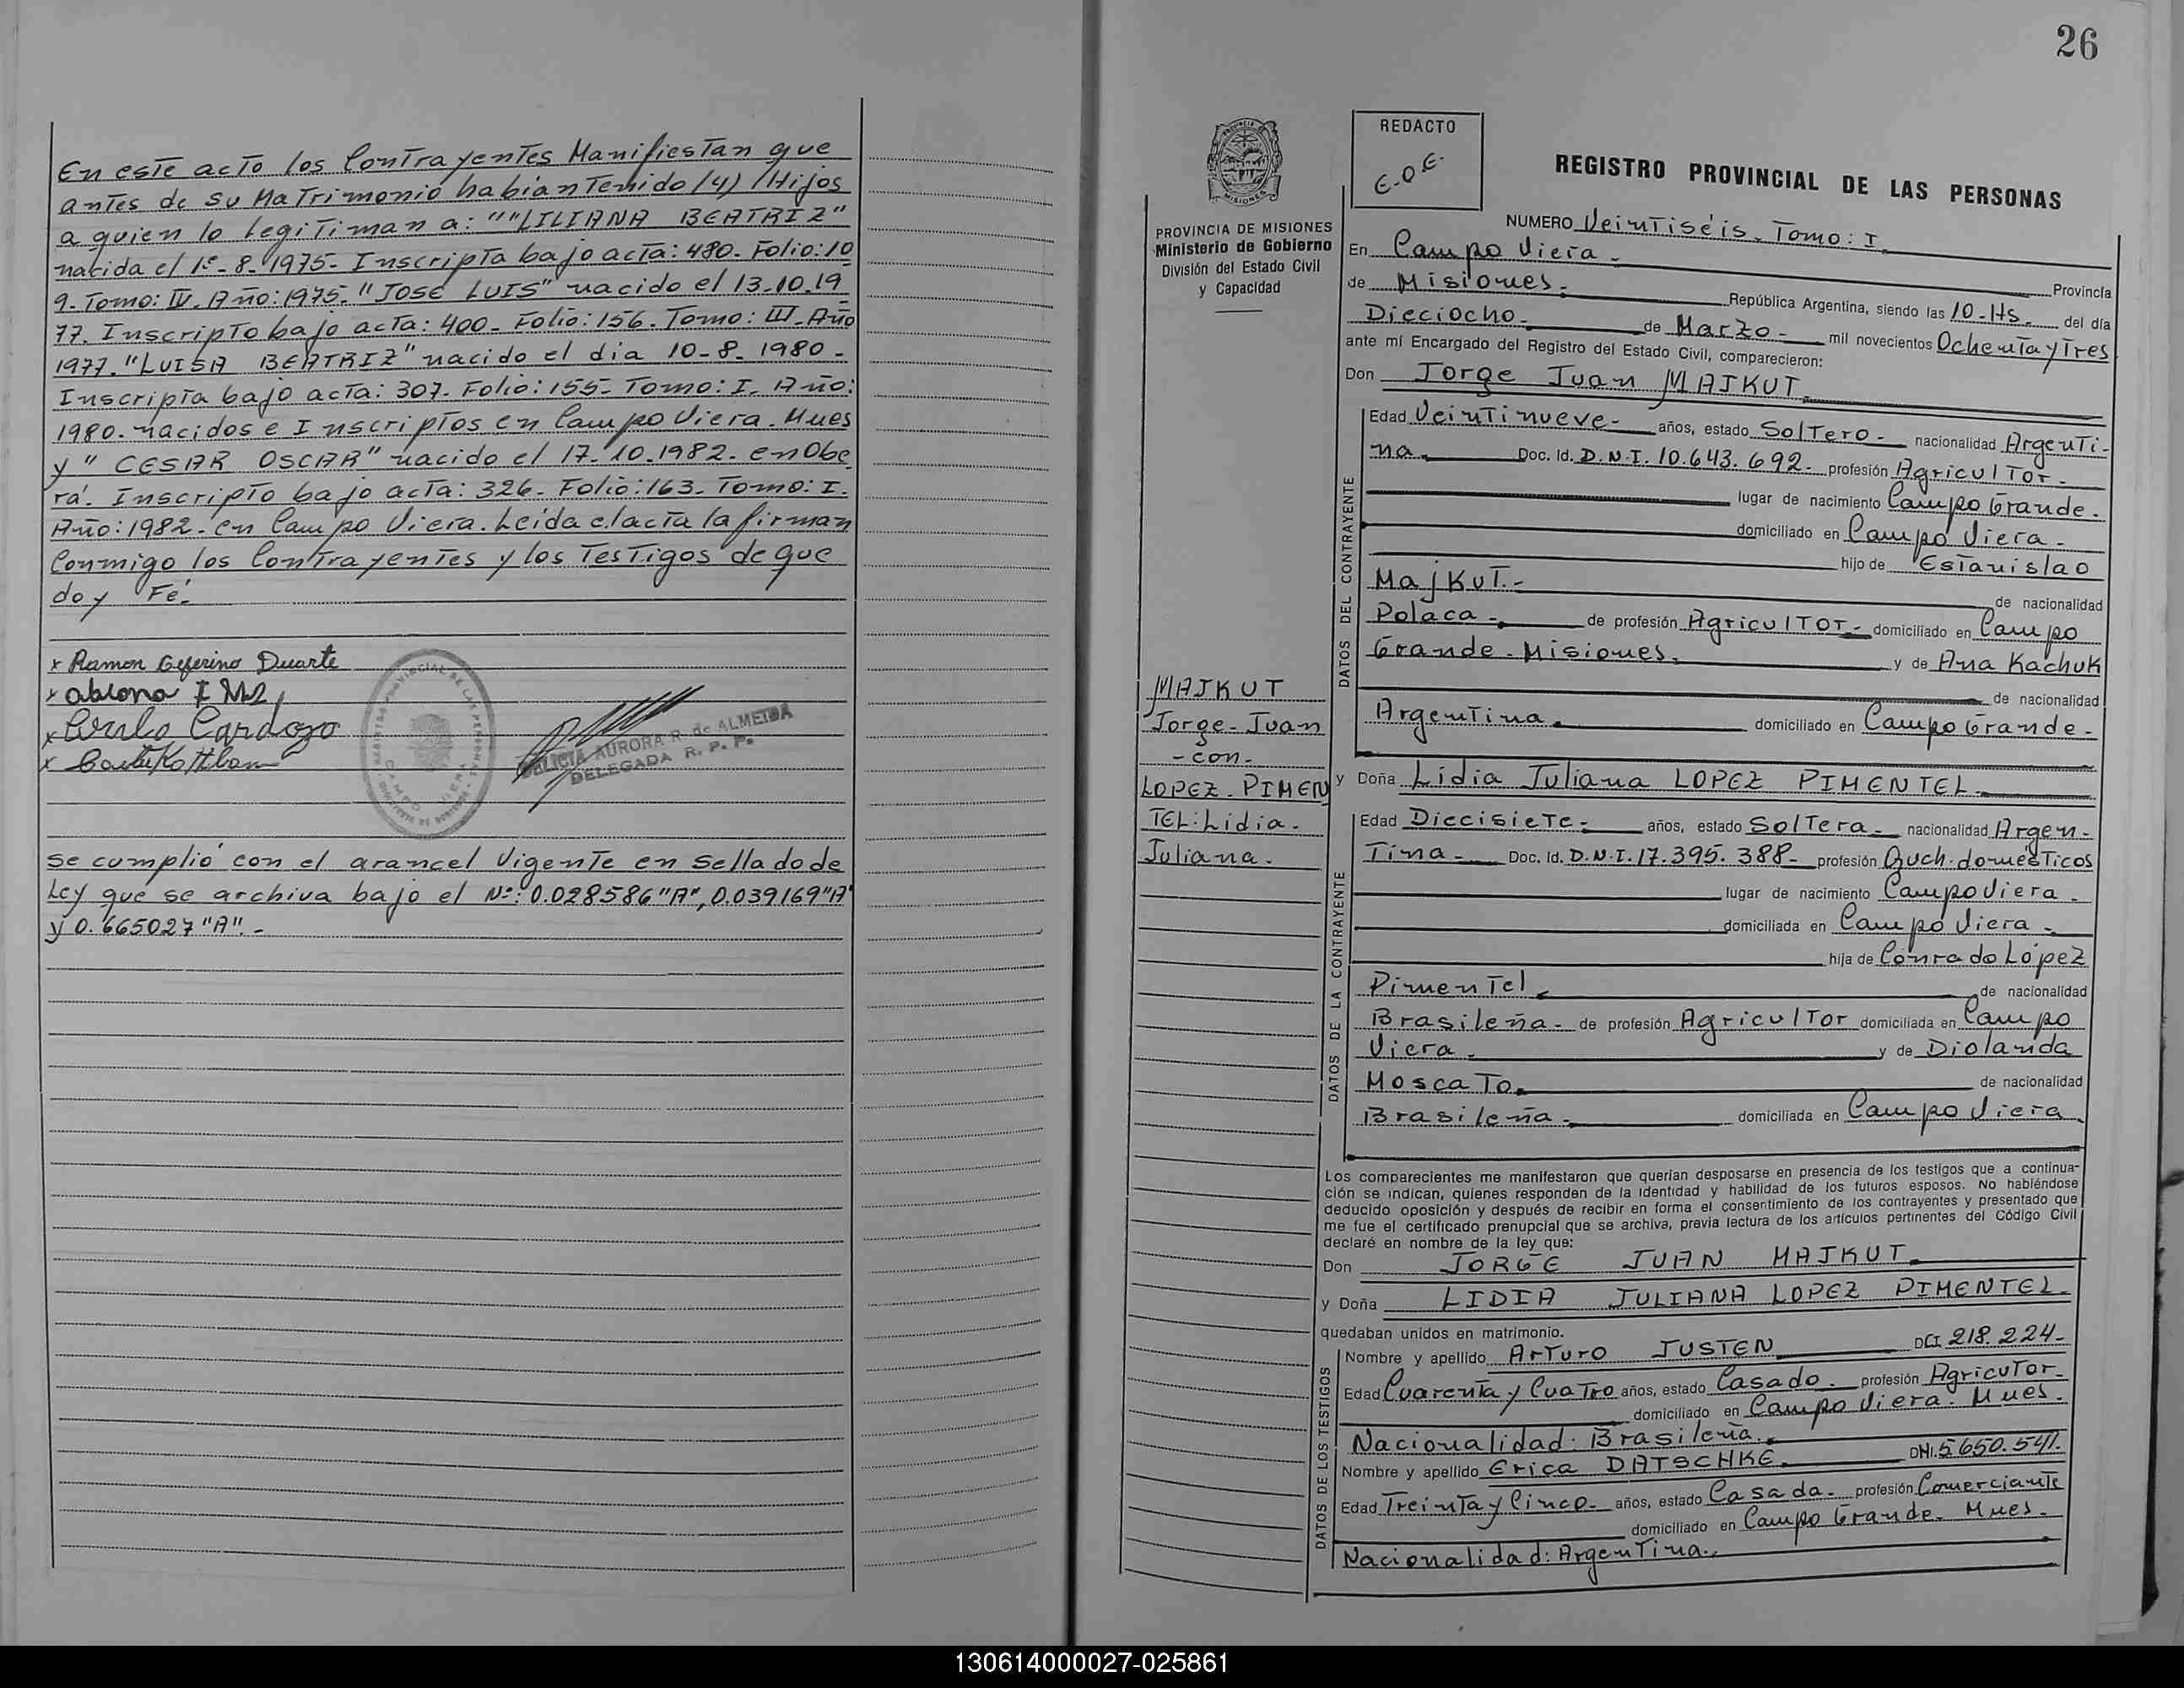 En este acto los Contrayentes Manifiestan que
antes de su Matrimonio habian Tenido (4) Hijos
a quien lo legitiman a: ""LILIANA BEATRIZ"
nacida el 1º-8-1975- Inscripta bajo acta: 480. Folio: 10
9. Tomo: IV. Año: 1975. "JOSE LUIS" nacido el 13.10.19
77. Inscripto bajo acta: 400- Folio: 156. Tomo: III- Año
1977. "LUISA BEATRIZ" nacido el dia 10-8-1980-
Inscripta bajo acta: 307. Folio: 155- Tomo: I. Año:
1980. nacidos e Inscriptos en Campo Viera. Mnes
y " CESAR OSCAR" nacido el 17-10.1982. en Obe
rá. Inscripto bajo acta: 326- Folio: 163- Tomo: I.
Año: 1982- en Campo Viera. Leida el acta la firman
Conmigo los Contrayentes y los Testigos de que
doy Fé.
x Ramon Ceferino Duarte
x
x Cardozo
x
ALICIA AURORA R. de ALMEIDA
DELEGADA R. P. P.
Se cumplió con el arancel Vigente en Sellado de
Ley que se archiva bajo el Nº: 0.028586 "A", 0.039169 "A"
y 0.665027 "A".-
26
REDACTO
E.O.E.
REGISTRO PROVINCIAL DE LAS PERSONAS
PROVINCIA DE MISIONES
Ministerio de Gobierno
División del Estado Civil
y Capacidad
NUMERO Veintiséis. Tomo: I.
En Campo Viera. Provincia
de Misiones. República Argentina, siendo las 10-Hs. del día
Dieciocho. de Marzo- mil novecientos Ochenta y Tres
ante mí Encargado del Registro del Estado Civil, comparecieron:
Don Jorge Juan MAJKUT
DATOS DEL CONTRAYENTE
Edad Veintinueve- años, estado Soltero- nacionalidad Argenti-
na. Doc. Id. D.N.I. 10.643.692- profesión Agricultor.
lugar de nacimiento Campo Grande.
domiciliado en Campo Viera.
hijo de Estanislao
Majkut.- de nacionalidad
Polaca-. de profesión Agricultor- domiciliado en Campo
Grande- Misiones. y de Ana Kachuk
de nacionalidad
Argentina. domiciliado en Campo Grande-
MAJKUT
Jorge-Juan
-con-
LOPEZ-PIMEN
TEL: Lidia.
Juliana.
y Doña Lidia Juliana LOPEZ PIMENTEL.
DATOS DE LA CONTRAYENTE
Edad Diecisiete- años, estado Soltera- nacionalidad Argen-
Tina- Doc. Id. D.N.I. 17.395.388- profesión Quch. domésticos
lugar de nacimiento Campo Viera.
domiciliada en Campo Viera-
hija de Conrado López
Pimentel. de nacionalidad
Brasileña- de profesión Agricultor domiciliada en Campo
Viera. y de Diolanda
Moscato. de nacionalidad
Brasileña. domiciliada en Campo Viera
Los comparecientes me manifestaron que querían desposarse en presencia de los testigos que a continua-
ción se indican, quienes responden de la identidad y habilidad de los futuros esposos. No habiéndose
deducido oposición y después de recibir en forma el consentimiento de los contrayentes y presentado que
me fue el certificado prenupcial que se archiva, previa lectura de los artículos pertinentes del Código Civil
declaré en nombre de la ley que:
Don JORGE JUAN MAJKUT.
y Doña LIDIA JULIANA LOPEZ PIMENTEL.
quedaban unidos en matrimonio.
DATOS DE LOS TESTIGOS
Nombre y apellido Arturo JUSTEN DCI 218.224-
Edad Cuarenta y Cuatro años, estado Casado. profesión Agricutor-
domiciliado en Campo Viera. Mnes.
Nacionalidad: Brasileña.
Nombre y apellido Erica DATSCHKE. DNI. 5.650.541.
Edad Treinta y Cinco- años, estado Casada- profesión Comerciante
domiciliado en Campo Grande. Mnes.
Nacionalidad: Argentina.
130614000027-025861